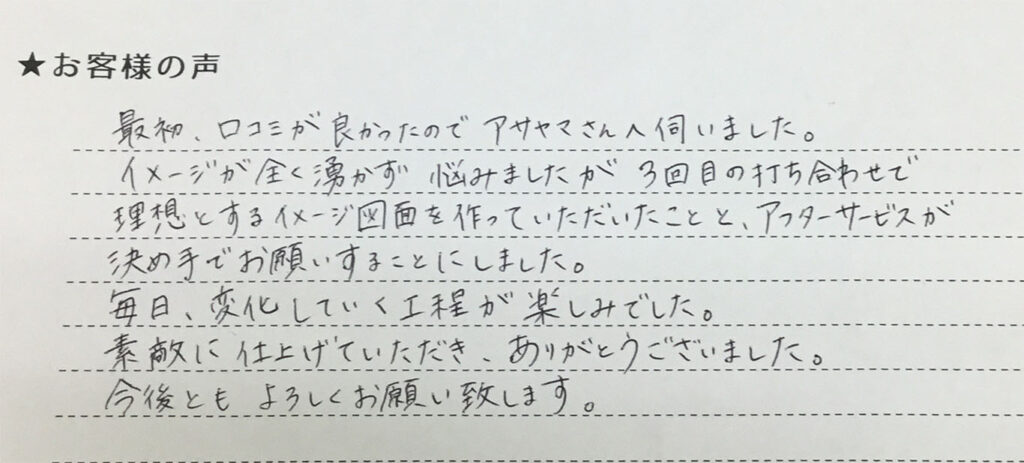 ★お客様の声
最初、口コミが良かったのでアサヤマさんへ伺いました。
イメージが全く湧かず悩みましたが3回目の打ち合わせで
理想とするイメージ図面を作っていただいたことと、アフターサービスが
決め手でお願いすることにしました。
毎日、変化していく工程が楽しみでした。
素敵に仕上げていただき、ありがとうございました。
今後ともよろしくお願い致します。